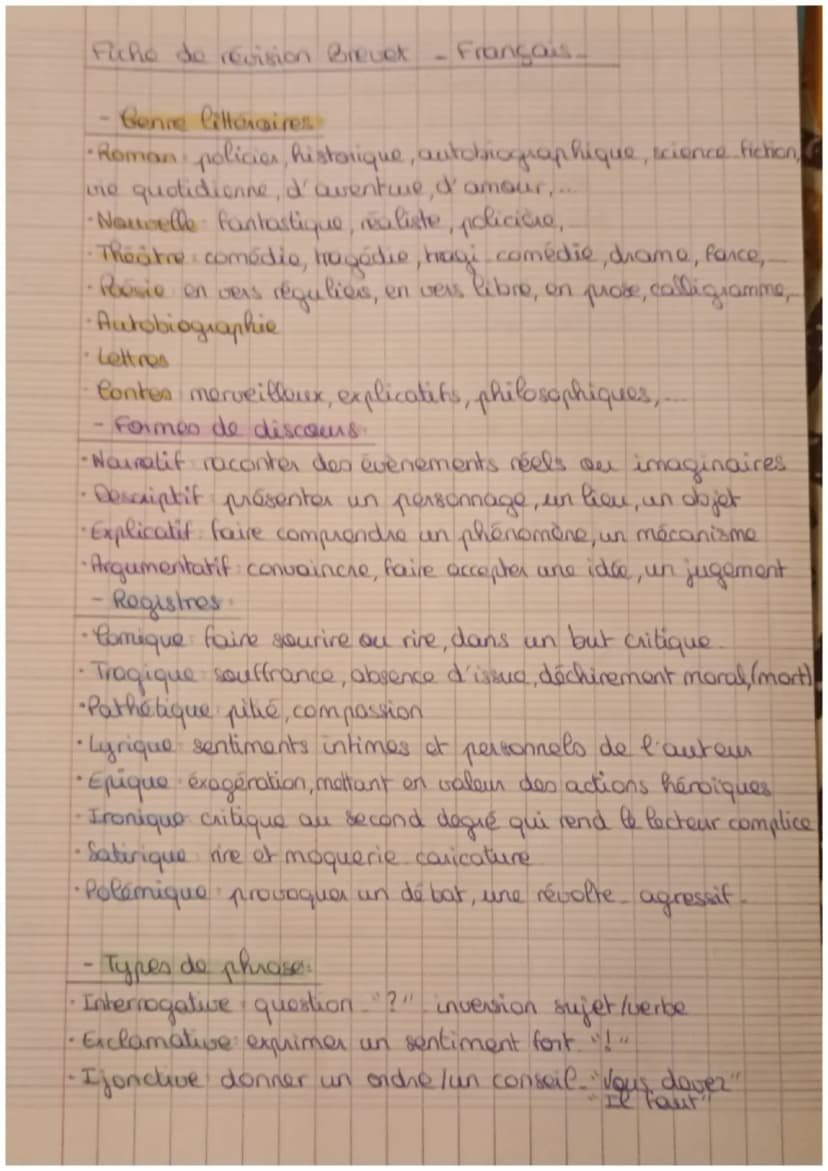 Fiche de révision Brevet - Français -
- Genre littéraires
· Roman : policier, historique, autobiographique, science fiction,
vie quotidienne, d'aventure, d'amour,...
· Nouvelle : fantastique, réaliste, policière,...
· Théâtre : comédie, tragédie, tragi comédie, drame, farce,...
· Poésie en vers réguliers, en vers libre, en prose, calligramme,...
· Autobiographie
· Lettres
· Contes merveilleux, explicatifs, philosophiques,...
- Formes de discours :
· Narratif : raconter des évènements réels ou imaginaires
· Descriptif : présenter un personnage, un lieu, un objet
· Explicatif : faire comprendre un phénomène, un mécanisme
· Argumentatif : convaincre, faire accepter une idée, un jugement
- Registres :
· Comique : faire sourire ou rire, dans un but critique.
· Tragique : souffrance, absence d'issue, déchirement moral, (mort)
· Pathétique : pitié, compassion
· Lyrique : sentiments intimes et personnels de l'auteur
· Epique : éxagération, mettant en valeur des actions héroïques
· Ironique : critique au second degré qui rend le lecteur complice
· Satirique : rire et moquerie - caricature
· Polémique : provoquer un débat, une révolte - agressif -
- Types de phrases :
· Interrogative : question - "?" - inversion sujet/verbe
· Exclamative : exprimer un sentiment fort - "!"
· Ijonctive : donner un ordre/un conseil - "Vous devez"
"Il faut"